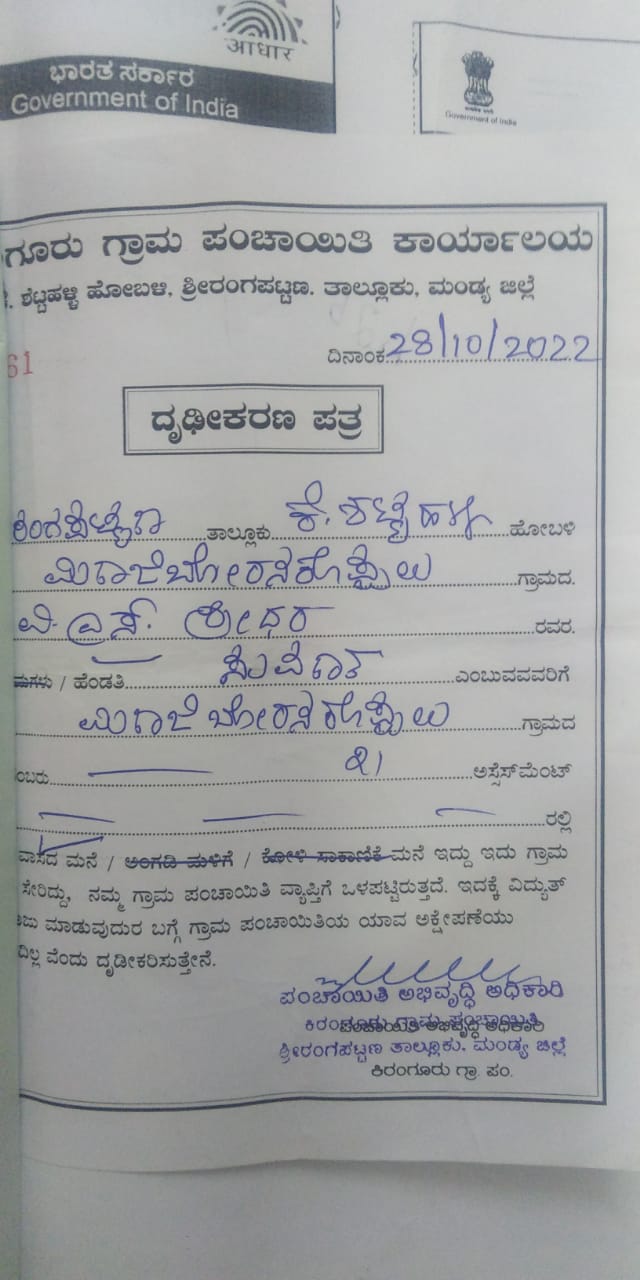 आधार
ಭಾರತ ಸರ್ಕಾರ
Government of India
Government of India
ಗೂರು ಗ್ರಾಮ ಪಂಚಾಯಿತಿ ಕಾರ್ಯಾಲಯ
ಶೆಟ್ಟಹಳ್ಳಿ ಹೋಬಳಿ, ಶ್ರೀರಂಗಪಟ್ಟಣ. ತಾಲ್ಲೂಕು, ಮಂಡ್ಯ ಜಿಲ್ಲೆ
61
ದಿನಾಂಕ 28/10/2022
ದೃಢೀಕರಣ ಪತ್ರ
ತಾಲ್ಲೂಕು ಕೆ. ಶೆಟ್ಟಹಳ್ಳಿ ಹೋಬಳಿ
ಗ್ರಾಮದ.
ವಿ. ಎಸ್. ಶ್ರೀಧರ ರವರ.
ಮಗಳು / ಹೆಂಡತಿ ಎಂಬುವವರಿಗೆ
ಗ್ರಾಮದ
ಂಬರು 21 ಅಸೆಸ್‌ಮೆಂಟ್
ರಲ್ಲಿ
ವಾಸದ ಮನೆ / ಅಂಗಡಿ ಮಳಿಗೆ / ಕೋಳಿ ಸಾಕಾಣಿಕೆ ಮನೆ ಇದ್ದು ಇದು ಗ್ರಾಮ
ಸೇರಿದ್ದು, ನಮ್ಮ ಗ್ರಾಮ ಪಂಚಾಯಿತಿ ವ್ಯಾಪ್ತಿಗೆ ಒಳಪಟ್ಟಿರುತ್ತದೆ. ಇದಕ್ಕೆ ವಿದ್ಯುತ್
ಮಾಡುವುದುರ ಬಗ್ಗೆ ಗ್ರಾಮ ಪಂಚಾಯಿತಿಯ ಯಾವ ಅಕ್ಷೇಪಣೆಯು
ದಿಲ್ಲ ವೆಂದು ದೃಡೀಕರಿಸುತ್ತೇನೆ.
ಪಂಚಾಯಿತಿ ಅಭಿವೃದ್ಧಿ ಅಧಿಕಾರಿ
ಕಿರಂಗೂರು ಗ್ರಾಮ ಪಂಚಾಯಿತಿ
ಪಂಚಾಯಿತಿ ಅಭಿವೃದ್ಧಿ ಅಧಿಕಾರಿ
ಶ್ರೀರಂಗಪಟ್ಟಣ ತಾಲ್ಲೂಕು, ಮಂಡ್ಯ ಜಿಲ್ಲೆ
ಕಿರಂಗೂರು ಗ್ರಾ. ಪಂ.